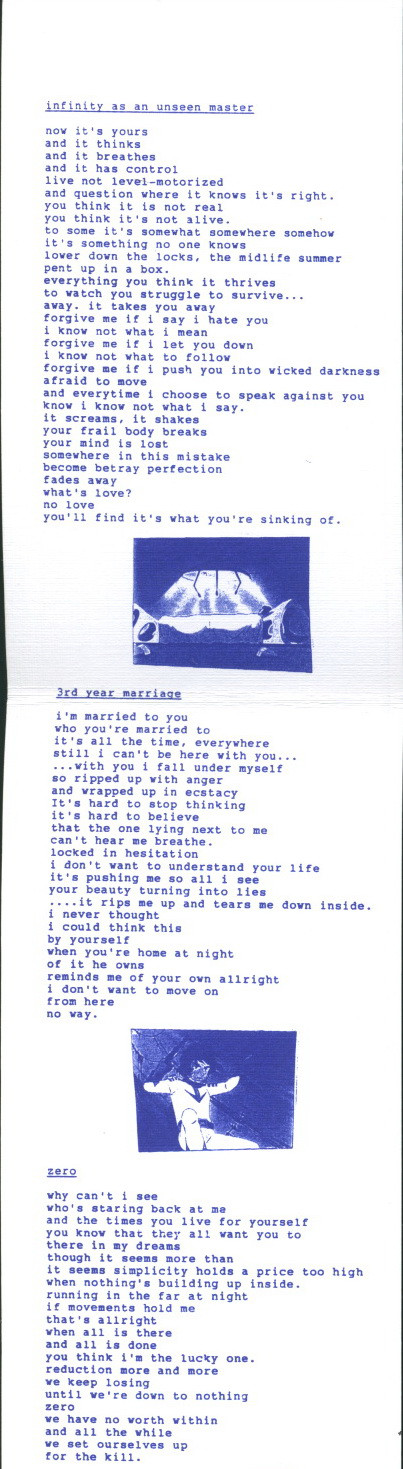 infinity as an unseen master
now it's yours
and it thinks
and it breathes
and it has control
live not level-motorized
and question where it knows it's right.
you think it is not real
you think it's not alive.
to some it's somewhat somewhere somehow
it's something no one knows
lower down the locks, the midlife summer
pent up in a box.
everything you think it thrives
to watch you struggle to survive...
away. it takes you away
forgive me if i say i hate you
i know not what i mean
forgive me if i let you down
i know not what to follow
forgive me if i push you into wicked darkness
afraid to move
and everytime i choose to speak against you
know i know not what i say.
it screams, it shakes
your frail body breaks
your mind is lost
somewhere in this mistake
become betray perfection
fades away
what's love?
no love
you'll find it's what you're sinking of.
3rd year marriage
i'm married to you
who you're married to
it's all the time, everywhere
still i can't be here with you...
...with you i fall under myself
so ripped up with anger
and wrapped up in ecstacy
It's hard to stop thinking
it's hard to believe
that the one lying next to me
can't hear me breathe.
locked in hesitation
i don't want to understand your life
it's pushing me so all i see
your beauty turning into lies
....it rips me up and tears me down inside.
i never thought
i could think this
by yourself
when you're home at night
of it he owns
reminds me of your own allright
i don't want to move on
from here
no way.
zero
why can't i see
who's staring back at me
and the times you live for yourself
you know that they all want you to
there in my dreams
though it seems more than
it seems simplicity holds a price too high
when nothing's building up inside.
running in the far at night
if movements hold me
that's allright
when all is there
and all is done
you think i'm the lucky one.
reduction more and more
we keep losing
until we're down to nothing
zero
we have no worth within
and all the while
we set ourselves up
for the kill.